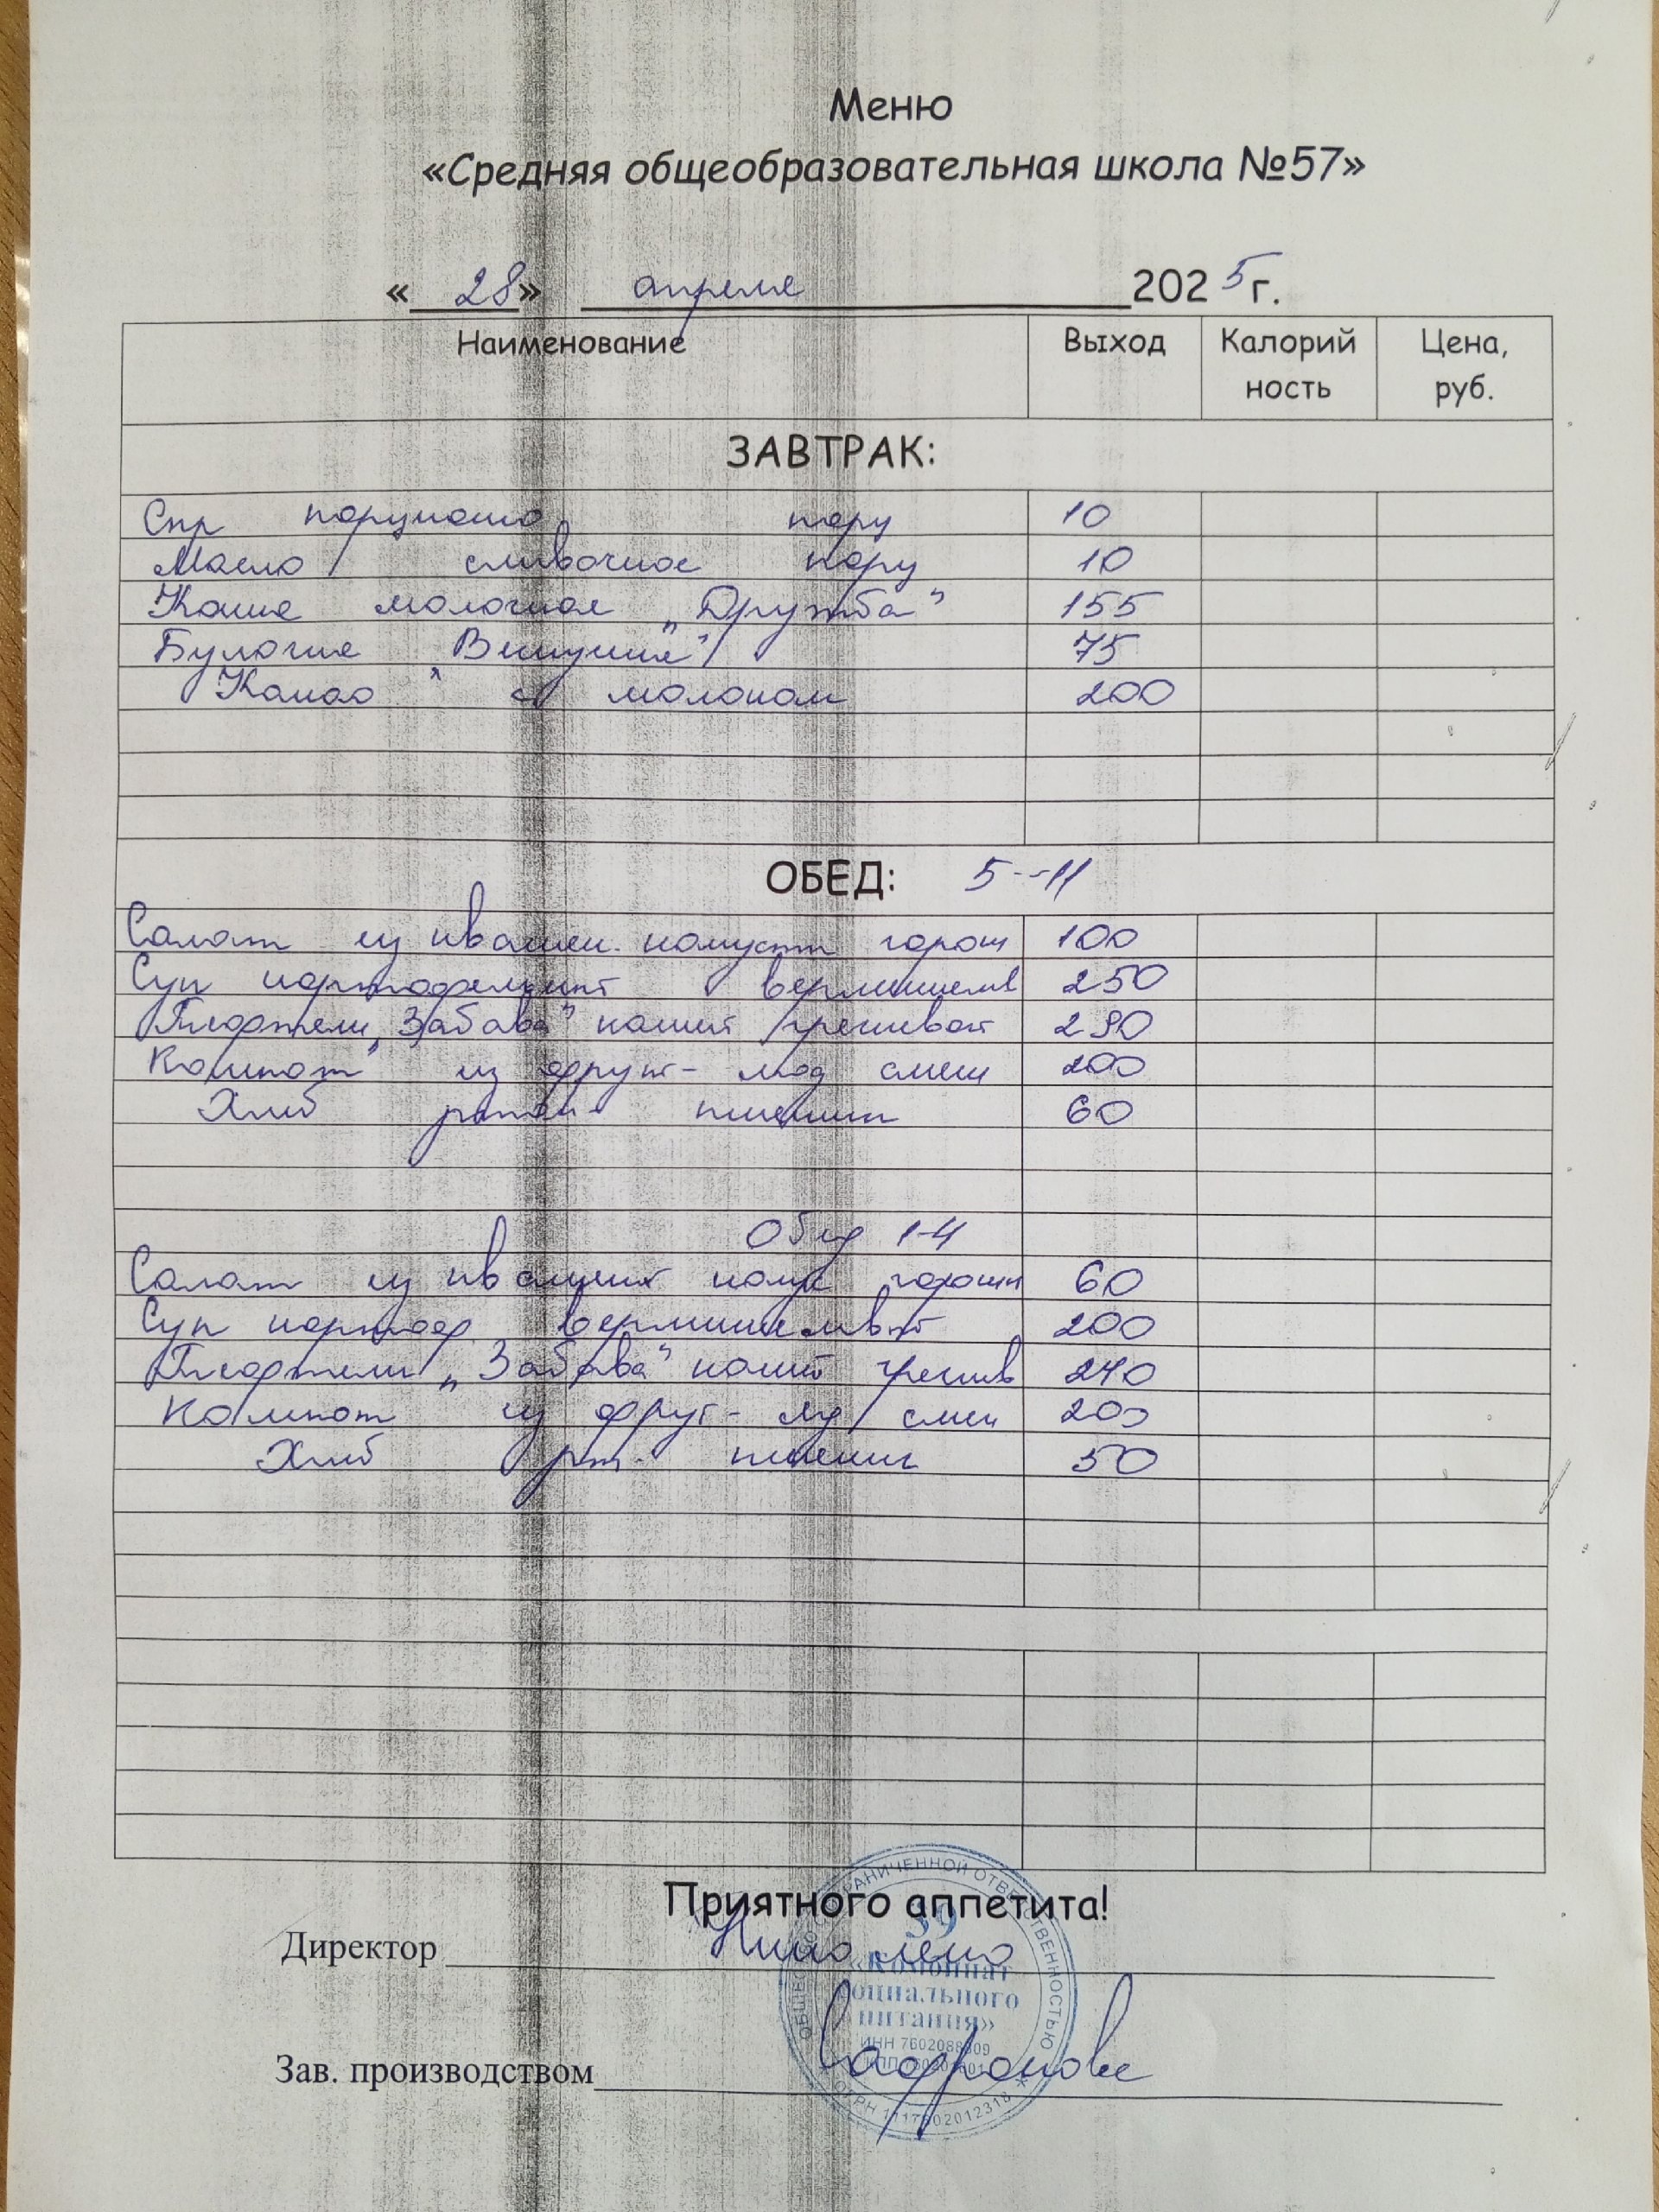 Меню
«Средняя общеобразовательная школа №57»
« 28 » апреля 2025 г.
Наименование Выход Калорий ность Цена, руб.
ЗАВТРАК:
Сыр порц 10
Масло сливочное порц 10
Каша молочная „Дружба" 155
Булочка 75
Какао с молоком 200
ОБЕД: 5--11
Салат из квашен. капусты горош 100
Суп картофельный вермишелев 250
Тефтели „Забава" кашей гречневой 290
Компот из фрукт- ягод смеси 200
Хлеб ржан- пшенич 60
Обед 1-4
Салат из квашеной капус горошк 60
Суп картоф вермишелевый 200
Тефтели „Забава" кашей гречнев 240
Компот из фрук- яг смеси 200
Хлеб рж- пшенич 50
Приятного аппетита!
Директор
Зав. производством Сафронова
«Комбинат социального питания»